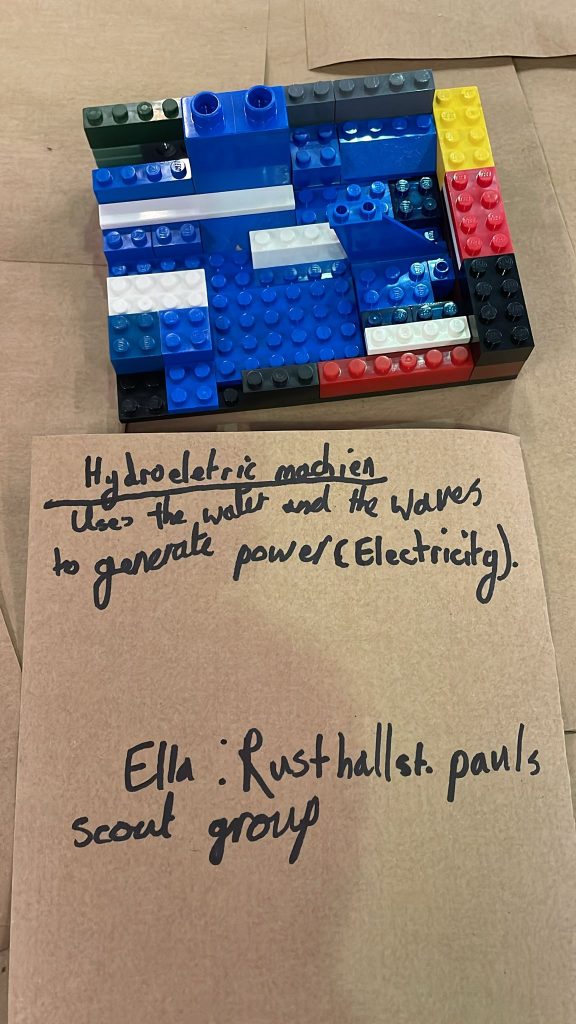 Hydroeletric machien
Uses the water and the waves
to generate power (Electricity).
Ella : Rusthall st. paul's
scout group